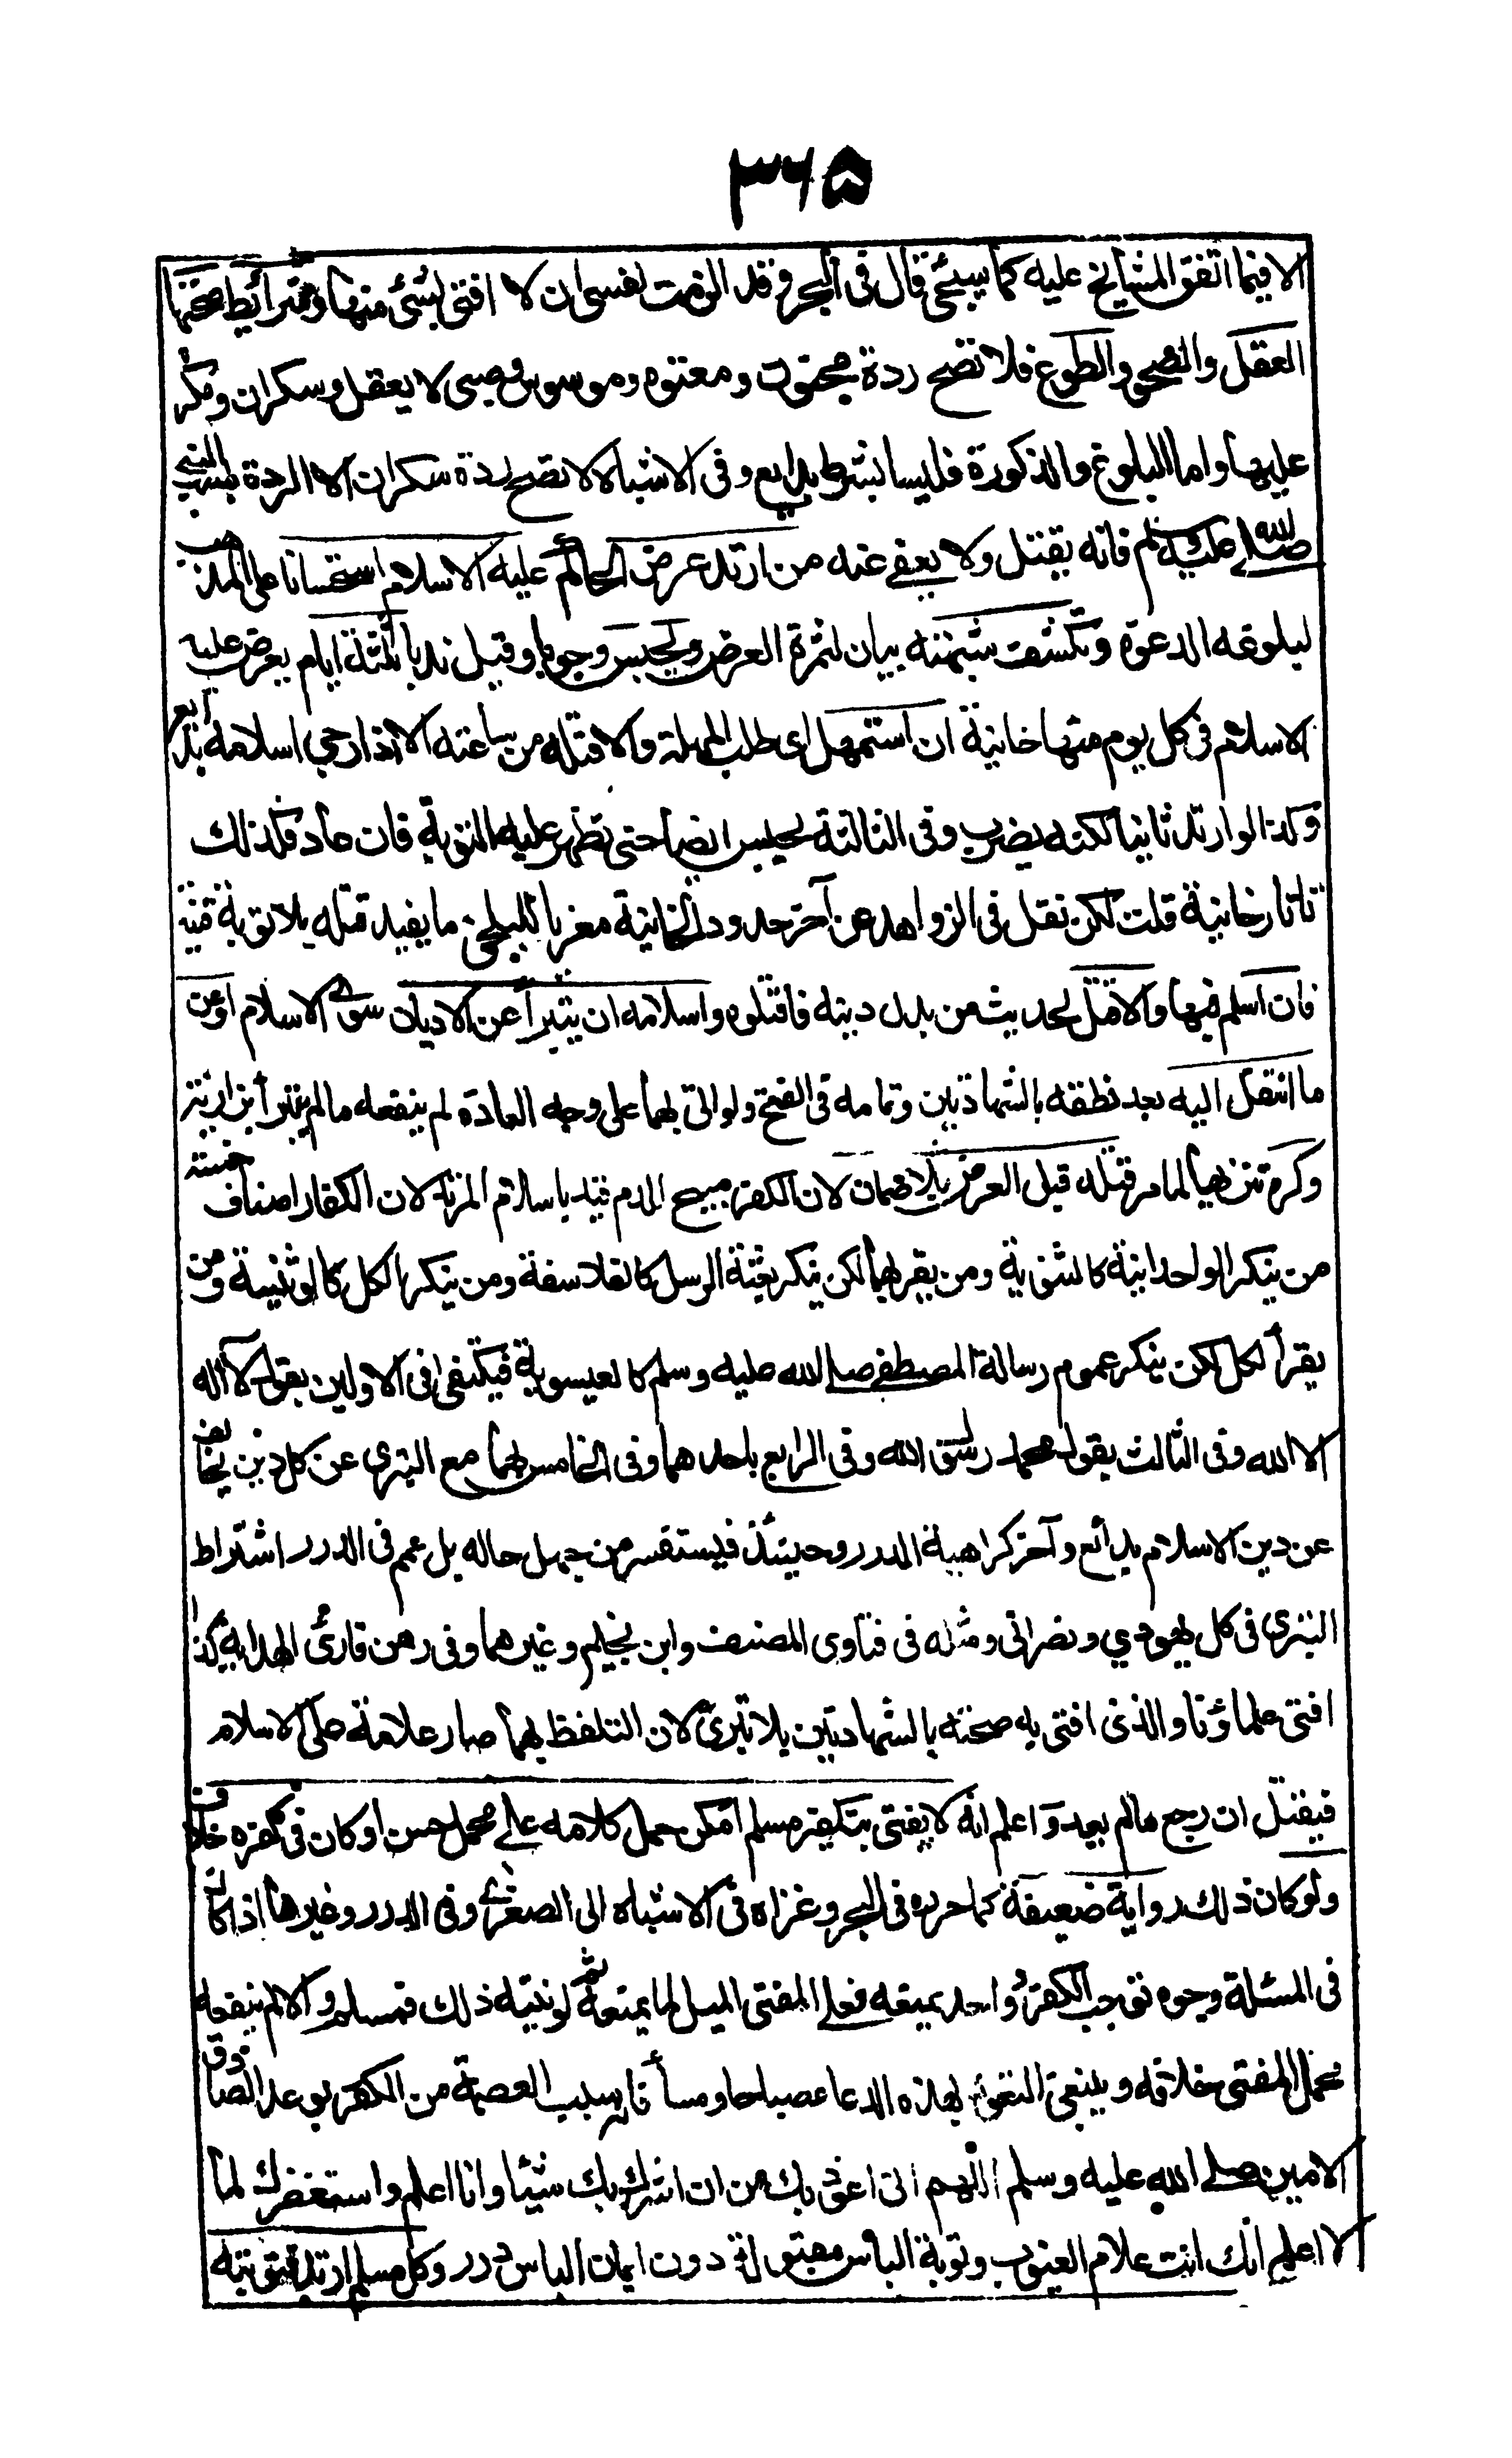 ۳۶۵
الا فيما اتفق المشايخ عليه كما سيجئ قال فى البحر وقد الزمت نفسى ان لا افتى بشئ منها وشرائط صحتها
العقل والصحو والطوع فلا تصح ردة مجنون ومعتوه وموسوس وصبى لا يعقل وسكران ومكره
عليها واما البلوغ والذكورة فليسا بشرط بدايع وفى الاشباه لا تصح ردة سكران الا الردة بسب النبي
صلى الله عليه وسلم فانه يقتل ولا يعفى عنه من ارتد عرض الحاكم عليه الاسلام استحسانا على المذهب
لبلوغه الدعوة وتكشف شبهته بيان لثمرة العرض ويحبس وجوبا وقيل ندبا ثلثة ايام يعرض عليه
الاسلام فى كل يوم منها خانية ان استمهل اى طلب المهلة والا قتله من ساعته الا اذا رجى اسلامه بدايع
وكذا لو ارتد ثانيا لكنه يضرب وفى الثالثة يحبس ايضا حتى تظهر عليه التوبة فان عاد فكذلك
تاتارخانية قلت لكن نقل فى الزواهر عن آخر حدود الخانية معزيا للبلخى ما يفيد قتله بلا توبة فتنبه
فان اسلم فيها والا قتل لحديث من بدل دينه فاقتلوه واسلامه ان يتبرأ عن الاديان سوى الاسلام او عن
ما انتقل اليه بعد نطقه بالشهادتين وتمامه فى الفتح ولو اتى بهما على وجه العادة لم ينفعه ما لم يتبرأ بزازية
وكره تنزيها لما مر قتله قبل العرض بلا ضمان لان الكفر مبيح للدم قيد باسلام المرتد لان الكفار اصناف خمسة
من ينكر الواحدانية كالثنوية ومن يقر بها لكن ينكر بعثة الرسل كالفلاسفة ومن ينكر الكل كالوثنية ومن
يقر الكل لكن ينكر عموم رسالة المصطفى صلى الله عليه وسلم كالعيسوية فيكتفى فى الاولين بقول لا اله
الا الله وفى الثالث بقول محمد رسول الله وفى الرابع باحدهما وفى الخامس بهما مع التبرى عن كل دين يخالف
عن دين الاسلام بدائع وآخر كراهية الدرر وحينئذ فيستفسر من جهل حاله بل عمم فى الدرر اشتراط
التبرى فى كل يهودي ونصرانى ومثله فى فتاوى المصنف وابن نجيم وغيرهما وفى رهن قارئ الهداية كذا
افتى علماؤنا والذى افتى به صحته بالشهادتين بلا تبرئ لان التلفظ بهما صار علامة على الاسلام
فيقتل ان رجع مالم يعد واعلم انه لا يفتى بتكفير مسلم امكن حمل كلامه على محمل حسن او كان فى كفره خلاف
ولو كان ذلك رواية ضعيفة كما حرره فى البحر وعزاه فى الاشباه الى الصغرى وفى الدرر وغيرها اذا كان
فى المسئلة وجوه توجب الكفر وواحد يمنعه فعلى المفتى الميل لما يمنعه ثم لو نيته ذلك فمسلم والا لم ينفعه
حمل المفتى خلافه وينبغى التعوذ بهذه الدعا صباحا ومسأ فانه سبب العصمة من الكفر بوعد الصادق
الامين صلى الله عليه وسلم اللهم انى اعوذ بك من ان اشرك بك شيئا وانا اعلم واستغفرك لما
لا اعلم انك انت علام الغيوب وتوبة الياس مقبولة دون ايمان الياس درر وكل مسلم ارتد فتوبته